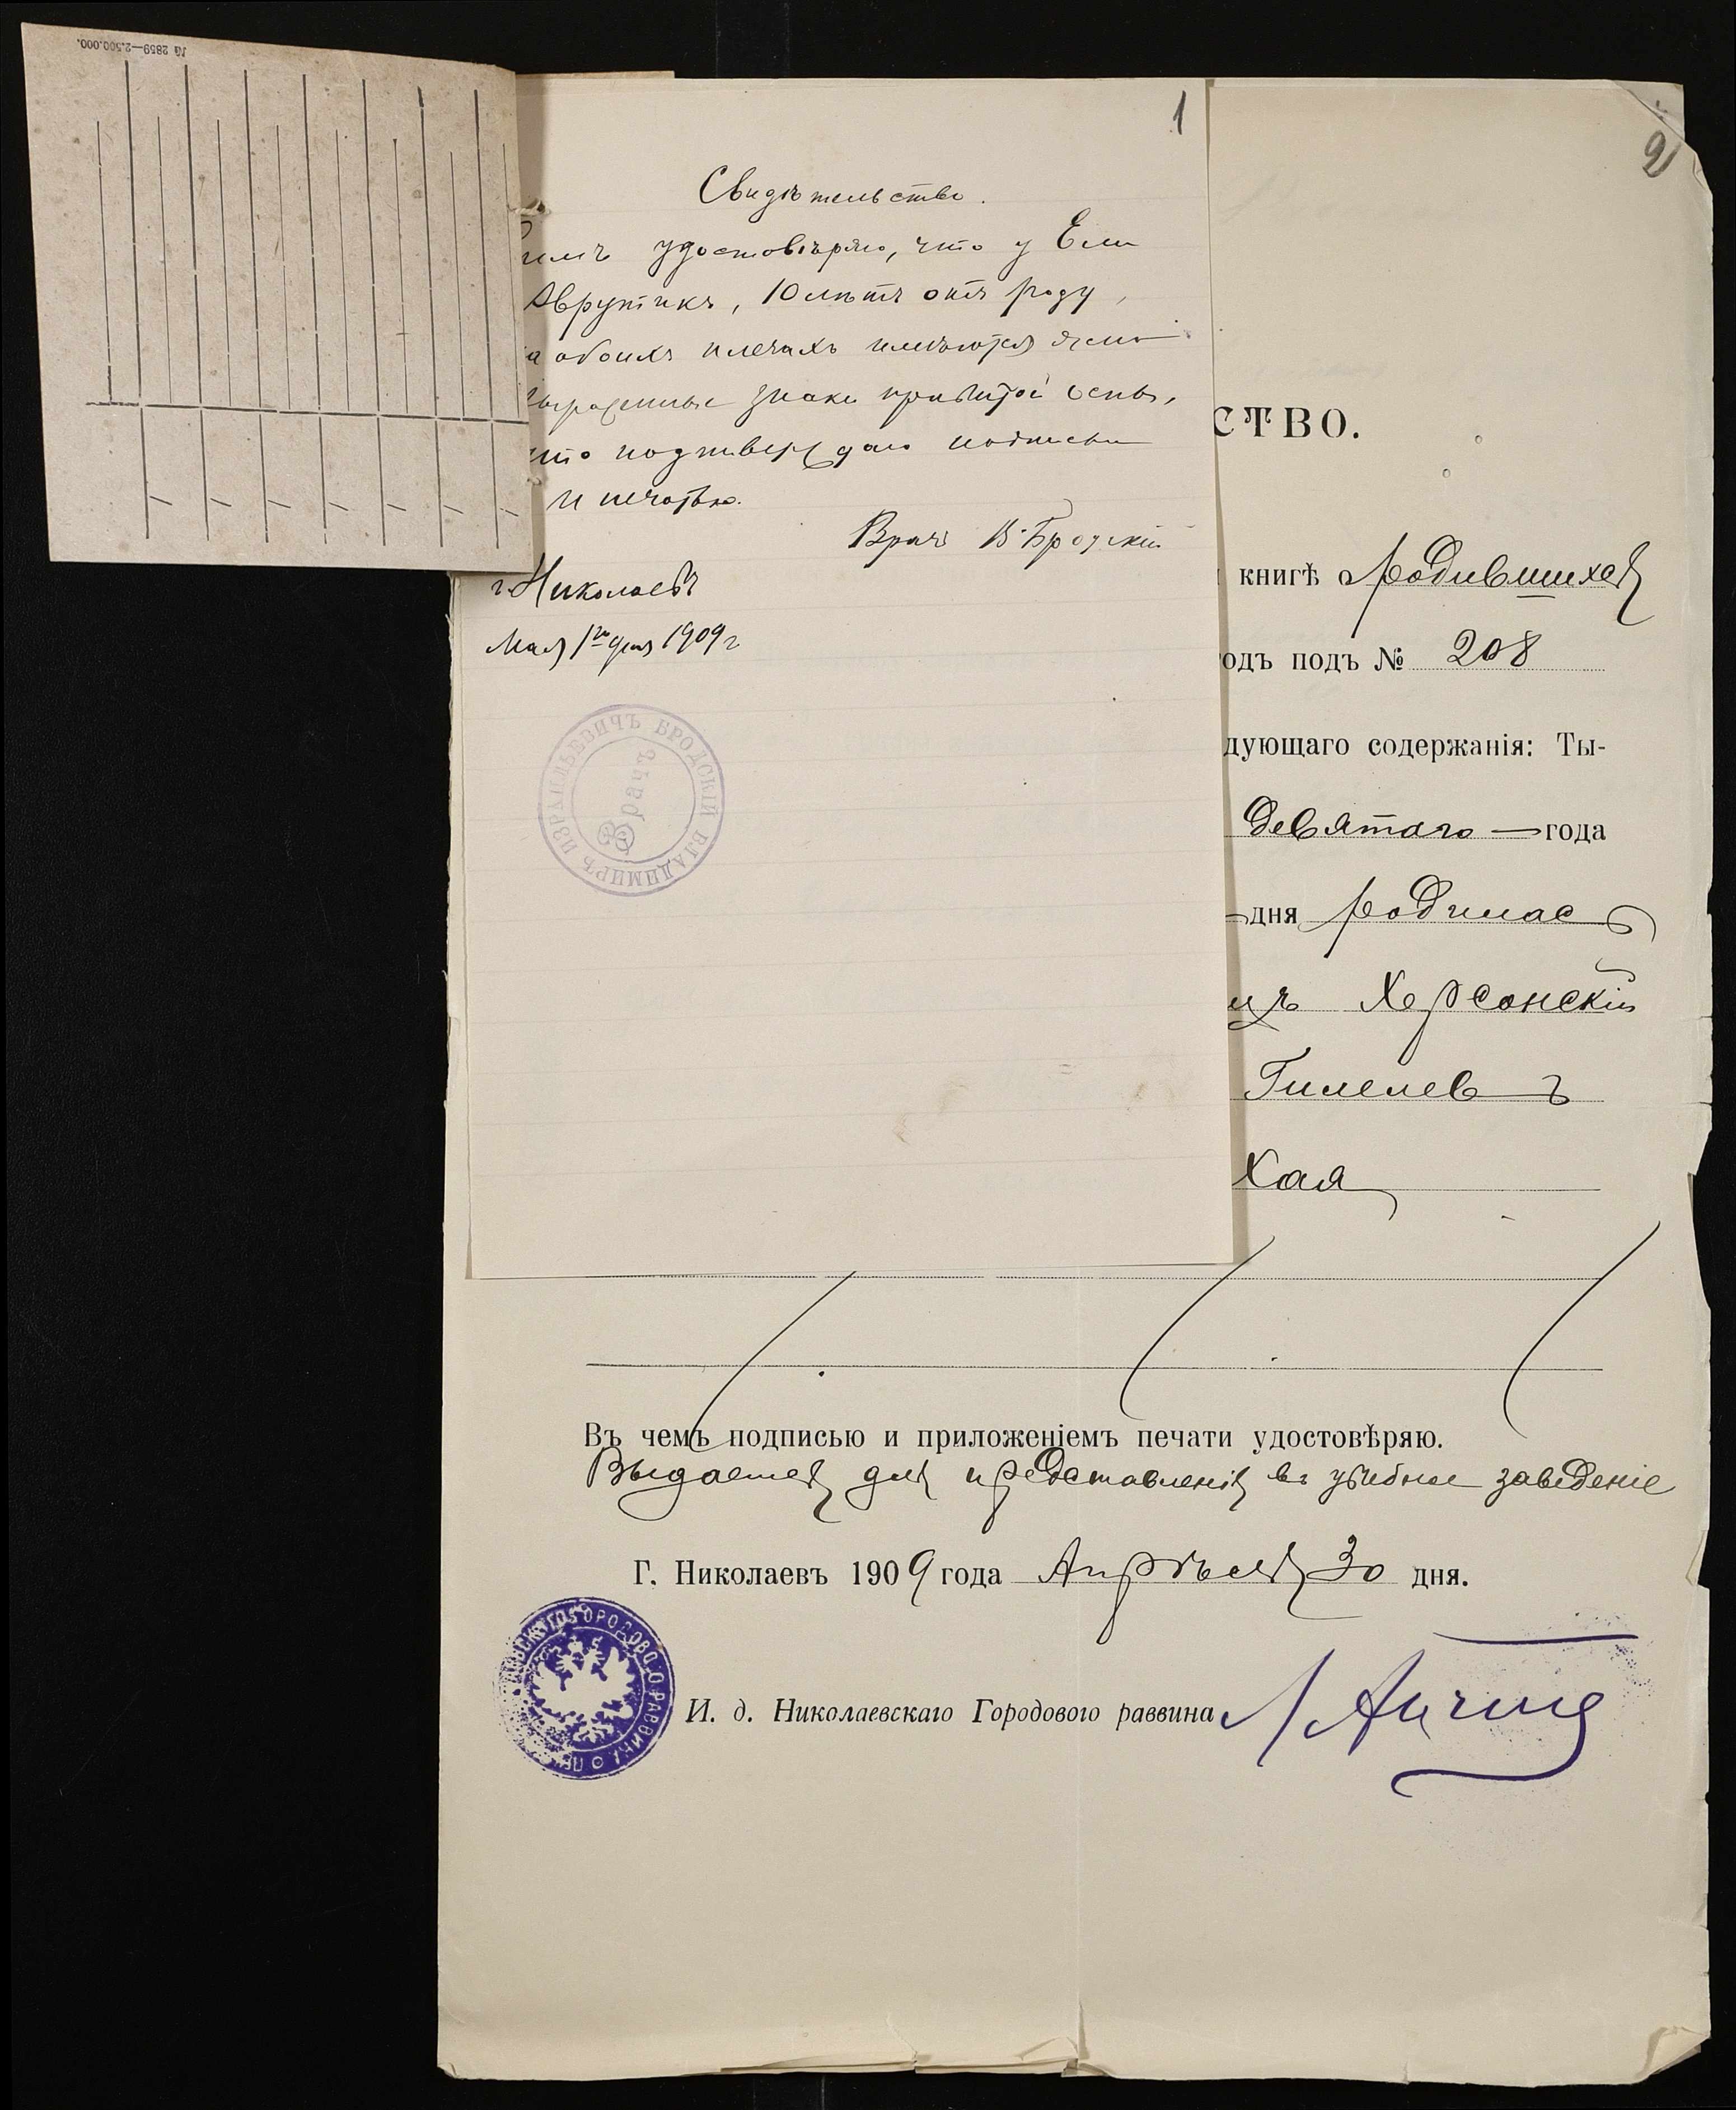 № 2859—2.500.000.
1
Свидѣтельство.
удостовѣряю, что у Ели
Аврутикъ, 10 лѣтъ отъ роду,
а обоихъ плечахъ имѣются ясно
выраженные знаки привитой оспы,
что подтверждаю подписью
и печатью.
Врачъ В. Бродскій
г. Николаевъ
Мая 1го дня 1909 г
ВЛАДИМІРЪ ИЗРАИЛЬЕВИЧЪ БРОДСКІЙ
Врачъ
2
СТВО.
книгѣ о родившихся
одъ подъ № 208
дующаго содержанія: Ты-
девятаго — года
дня родилась
Херсонскій
Гилелевъ
Хая
Въ чемъ подписью и приложеніемъ печати удостовѣряю.
Выдается для представленія въ учебное заведеніе
Г. Николаевъ 1909 года Апрѣля 30 дня.
ГОРОДОВОГО РАВВИНА
И. д. Николаевскаго Городового раввина